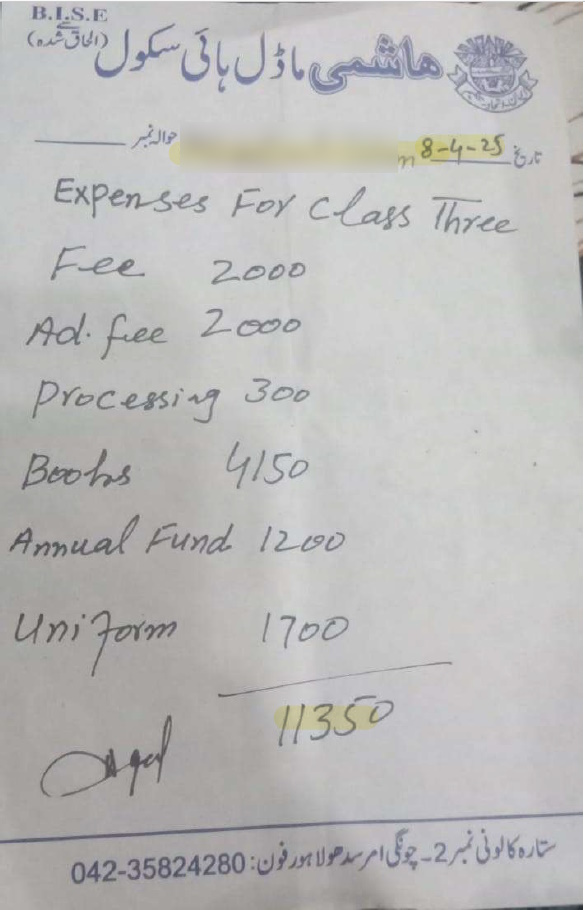 B.I.S.E
سے
(الحاق شدہ)
ہاشمی ماڈل ہائی سکول
تاریخ 8-4-25 حوالہ نمبر
Expenses For Class Three
Fee 2000
Ad. fee 2000
Processing 300
Books 4150
Annual Fund 1200
Uniform 1700
11350
ستارہ کالونی نمبر 2۔ چونگی امرسدھو لاہور فون: 042-35824280